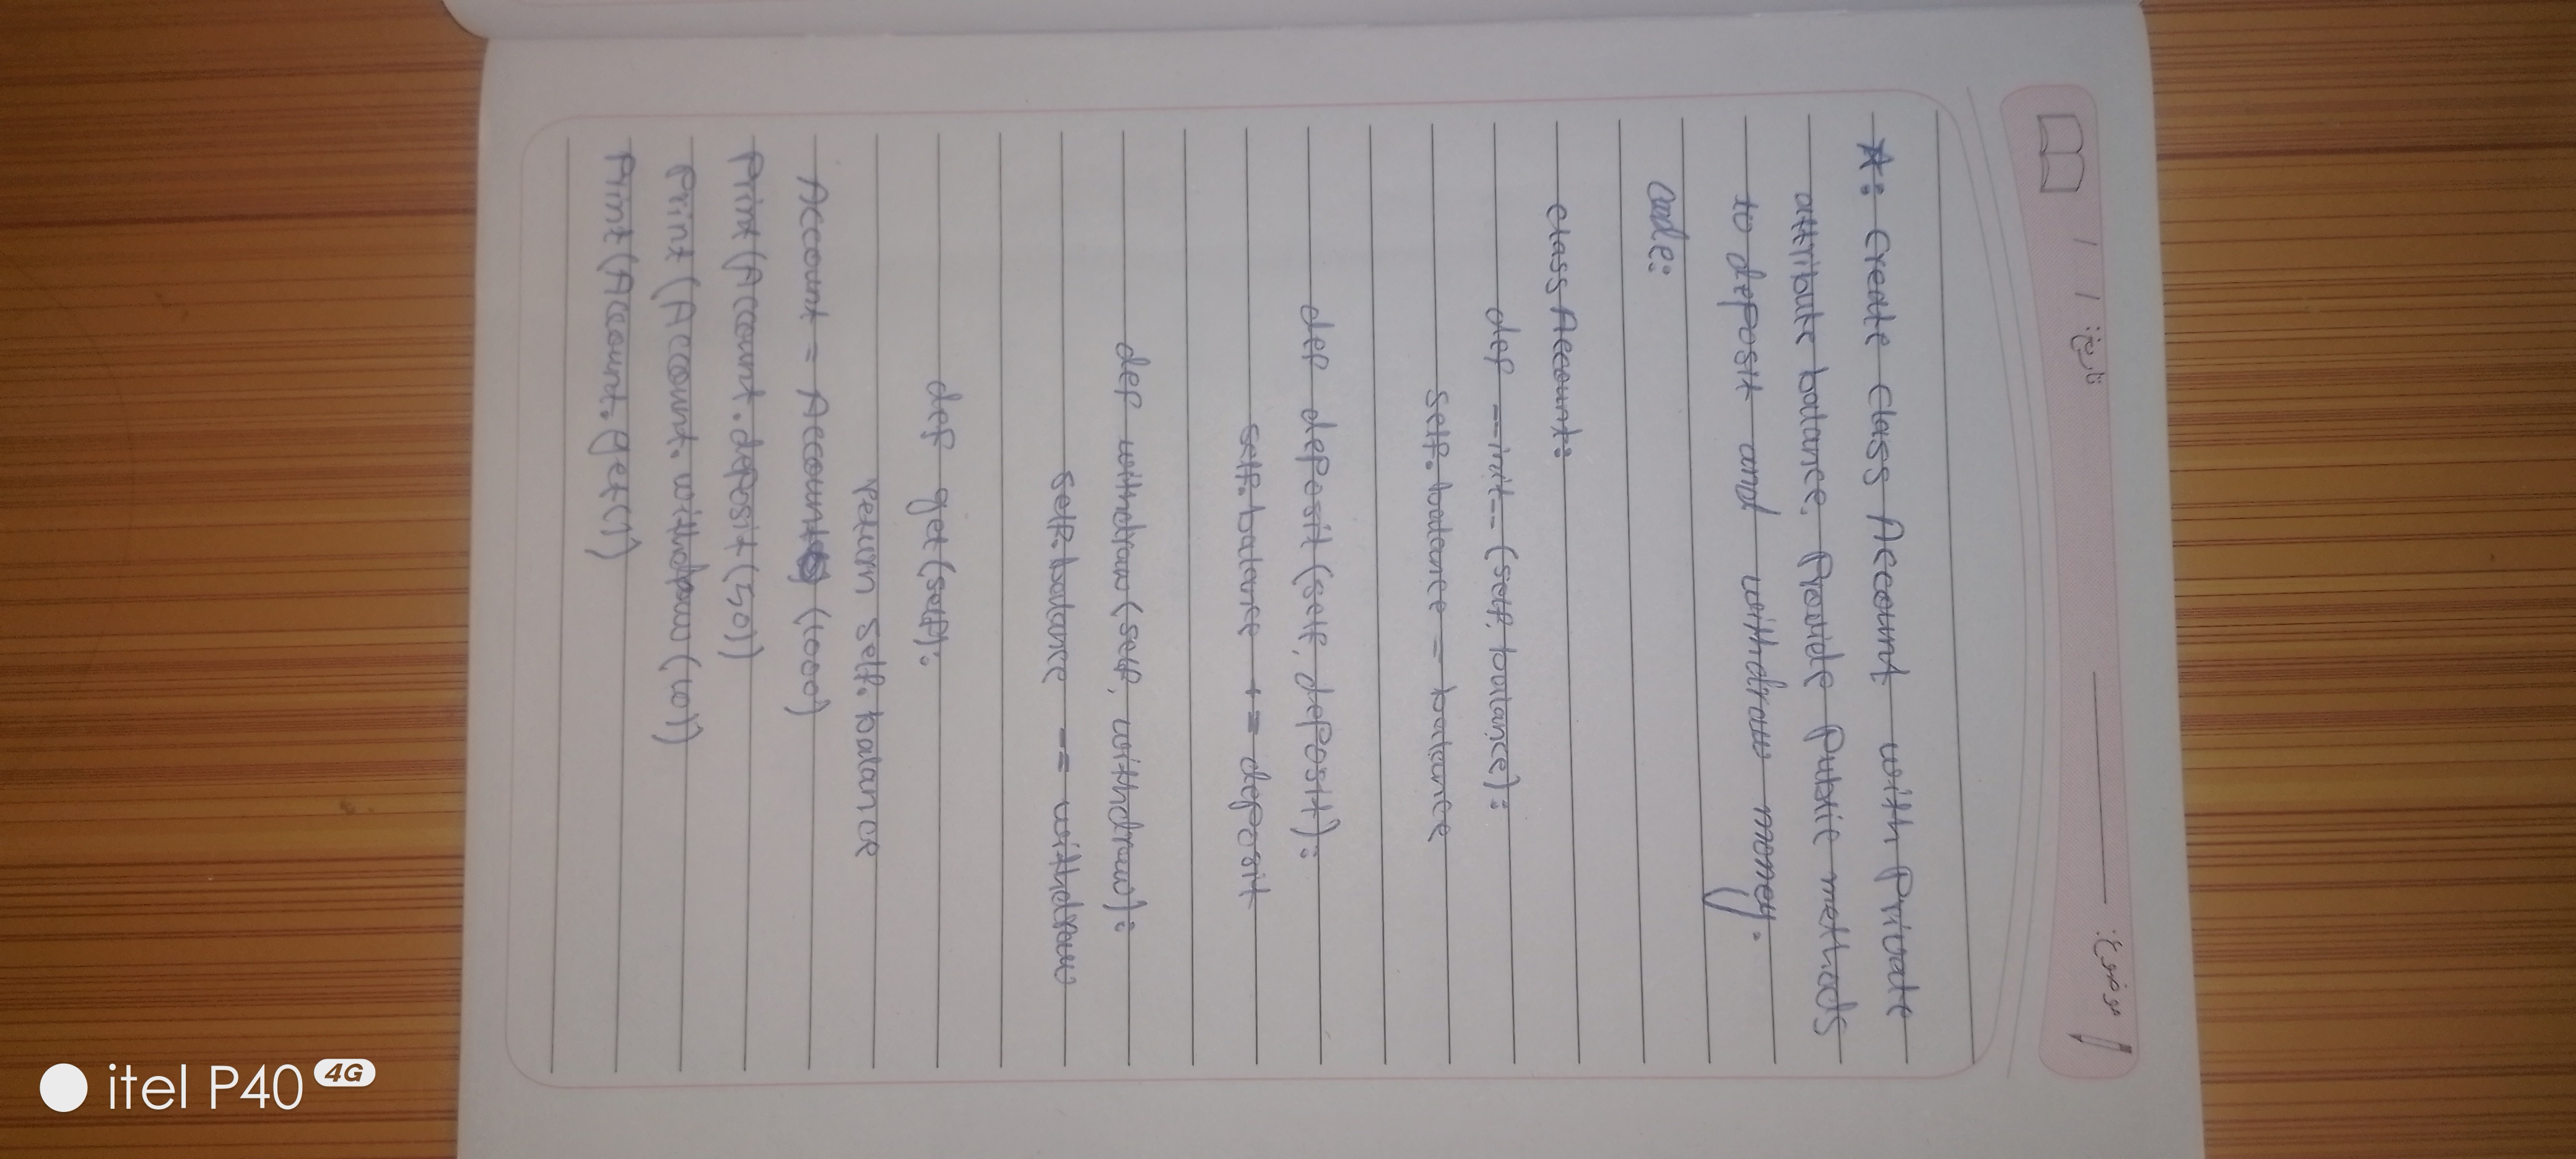 تاریخ: / /
موضوع:
*: Create Class Account with Private
attribute balance. Provide Public methods
to deposit and withdraw money.
Code:
class Account:
def __init__ (self, balance):
self.balance = balance
def deposit (self, deposit):
self.balance += deposit
def withdraw (self, withdraw):
self.balance -= withdraw
def get (self):
return self.balance
Account = Account (1000)
Print (Account.deposit (50))
Print (Account.withdraw (10))
Print (Account.get())
itel P40 4G